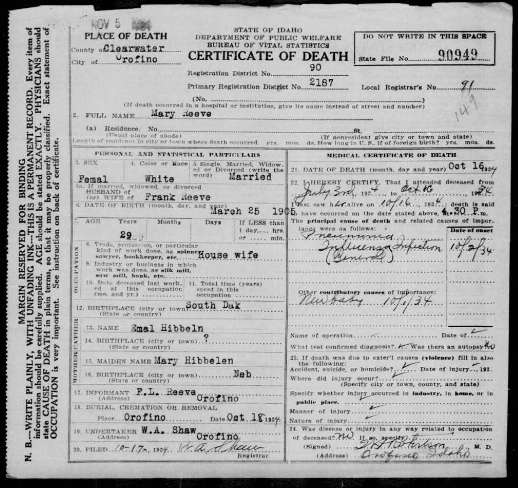 NOV 5 1934
STATE OF IDAHO
DEPARTMENT OF PUBLIC WELFARE
BUREAU OF VITAL STATISTICS
CERTIFICATE OF DEATH
PLACE OF DEATH
County of Clearwater
City of Orofino
DO NOT WRITE IN THIS SPACE
State File No. 90949
Registration District No. 90
Primary Registration District No. 2187
Local Registrar's No. 91
147
(No.
(If death occurred in a hospital or institution, give its name instead of street and number)
2. FULL NAME Mary Reeve
(a) Residence. No. St.
(Usual place of abode) (If nonresident give city or town and state)
Length of residence in city or town where death occurred yrs. mos. ds. How long in U. S., if of foreign birth? yrs. mos. ds.
PERSONAL AND STATISTICAL PARTICULARS
3. SEX Femal
4. Color or Race White
5. Single, Married, Widowed, or Divorced (write the word) Married
5a. If married, widowed, or divorced
HUSBAND of
(or) WIFE of Frank Reeve
6. DATE OF BIRTH (month, day, and year) March 25 1905
7. AGE Years 29 Months Days If LESS than 1 day, hrs. or min.
OCCUPATION
8. Trade, profession, or particular kind of work done, as spinner, sawyer, bookkeeper, etc. House wife
9. Industry or business in which work was done, as silk mill, saw mill, bank, etc.
10. Date deceased last worked at this occupation (mo. and yr.)
11. Total time (years) spent in this occupation
12. BIRTHPLACE (city or town) South Dak
(State or country)
13. NAME Emal Hibbeln
14. BIRTHPLACE (city or town) ?
(State or country)
15. MAIDEN NAME Mary Hibbelen
16. BIRTHPLACE (city or town) Neb
(State or country)
17. INFORMANT F.L. Reeve
(Address) Orofino
18. BURIAL, CREMATION OR REMOVAL
Place Orofino Date Oct 18 1934
19. UNDERTAKER W.A. Shaw
(Address) Orofino
20. FILED 10-17- 1934 W.A. Shaw
Registrar
MEDICAL CERTIFICATE OF DEATH
21. DATE OF DEATH (month, day and year) Oct 16 1934
22. I HEREBY CERTIFY, That I attended deceased from
I last saw h er alive on 10/16 1934, death is said to
have occurred on the date stated above, at 4:30 P. m.
The principal cause of death and related causes of importance were as follows:
Date of onset
Pneumonia
Influenza Infection
(General)
Other contributory causes of importance:
New baby 10/1/34
Name of operation Date of
What test confirmed diagnosis? Was there an autopsy? No
23. If death was due to external causes (violence) fill in also the following:
Accident, suicide, or homicide? Date of injury , 192
Where did injury occur?
(Specify city or town, county, and state)
Specify whether injury occurred in industry, in home, or in public place.
Manner of injury
Nature of injury
24. Was disease or injury in any way related to occupation of deceased? No If so, specify
M. D.
(Address) Orofino Idaho
MARGIN RESERVED FOR BINDING
N. B.—WRITE PLAINLY, WITH UNFADING INK—THIS IS A PERMANENT RECORD. Every item of information should be carefully supplied. AGE should be stated EXACTLY. PHYSICIANS should state CAUSE OF DEATH in plain terms, so that it may be properly classified. Exact statement of OCCUPATION is very important. See instruction on back of certificate.